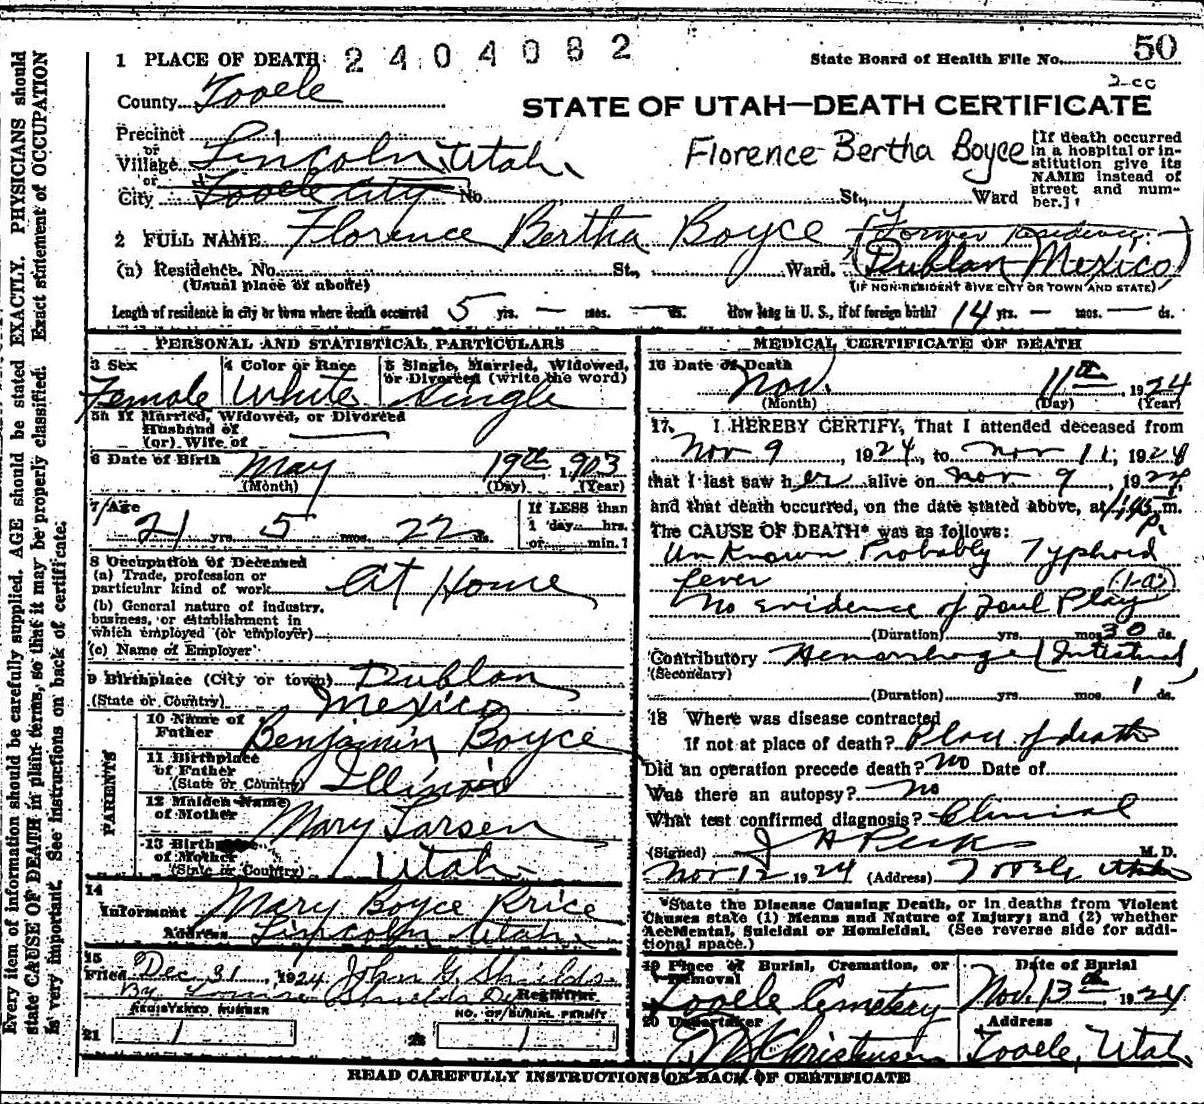 Every item of information should be carefully supplied. AGE should be stated EXACTLY. PHYSICIANS should
state CAUSE OF DEATH in plain terms, so that it may be properly classified. Exact statement of OCCUPATION
is very important. See instructions on back of certificate.
1 PLACE OF DEATH 2404082 State Board of Health File No. 50
2-cc
County Tooele
STATE OF UTAH—DEATH CERTIFICATE
Precinct
or
Village Lincoln, Utah
or
City Tooele City No. St., Ward
Florence Bertha Boyce
[If death occurred
in a hospital or in-
stitution give its
NAME instead of
street and num-
ber.]
2 FULL NAME Florence Bertha Boyce (Former Residence
(a) Residence. No. St., Ward. Dublan Mexico)
(Usual place of abode) (IF NON-RESIDENT GIVE CITY OR TOWN AND STATE)
Length of residence in city or town where death occurred 5 yrs. — mos. — ds. How long in U. S., if of foreign birth? 14 yrs. — mos. — ds.
PERSONAL AND STATISTICAL PARTICULARS
3 Sex 4 Color or Race 5 Single, Married, Widowed,
or Divorced (write the word)
Female White Single
5a If Married, Widowed, or Divorced
Husband of
(or) Wife of —
6 Date of Birth May 19th 1903
(Month) (Day) (Year)
7 Age If LESS than
21 yrs. 5 mos. 22 ds. 1 day hrs.
or min.?
8 Occupation of Deceased
(a) Trade, profession or
particular kind of work At Home
(b) General nature of industry,
business, or establishment in
which employed (or employer)
(c) Name of Employer
9 Birthplace (City or town) Dublan
(State or Country) Mexico
PARENTS
10 Name of
Father Benjamin Boyce
11 Birthplace
of Father
(State or Country) Illinois
12 Maiden Name
of Mother Mary Larsen
13 Birthplace
of Mother
(State or Country) Utah
14
Informant Mary Boyce Krice
Address Lincoln Utah
15
Filed Dec 31, 1924 John G. Shields
By Shields Registrar
REGISTERED NUMBER NO. OF BURIAL PERMIT
21 1 22 1
MEDICAL CERTIFICATE OF DEATH
16 Date of Death
Nov. 11th, 1924
(Month) (Day) (Year)
17. I HEREBY CERTIFY, That I attended deceased from
Nov 9, 1924, to Nov 11, 1924
that I last saw her alive on Nov 9, 1924,
and that death occurred, on the date stated above, at m.
The CAUSE OF DEATH* was as follows:
Unknown Probably Typhoid
fever (1-a)
No evidence of Foul Play
(Duration) yrs. mos. 30 ds.
Contributory Hemorrhage (Intestinal)
(Secondary)
(Duration) yrs. mos. 1 ds.
18 Where was disease contracted
If not at place of death? Place of death
Did an operation precede death? No Date of
Was there an autopsy? No
What test confirmed diagnosis? Clinical
(Signed) J A Peck M. D.
Nov 12 1924 (Address) Tooele Utah
*State the Disease Causing Death, or in deaths from Violent
Causes state (1) Means and Nature of Injury; and (2) whether
Accidental, Suicidal or Homicidal. (See reverse side for addi-
tional space.)
19 Place of Burial, Cremation, or Date of Burial
Removal
Tooele Cemetery Nov. 13th, 1924
20 Undertaker Address
Christensen Tooele, Utah
READ CAREFULLY INSTRUCTIONS ON BACK OF CERTIFICATE